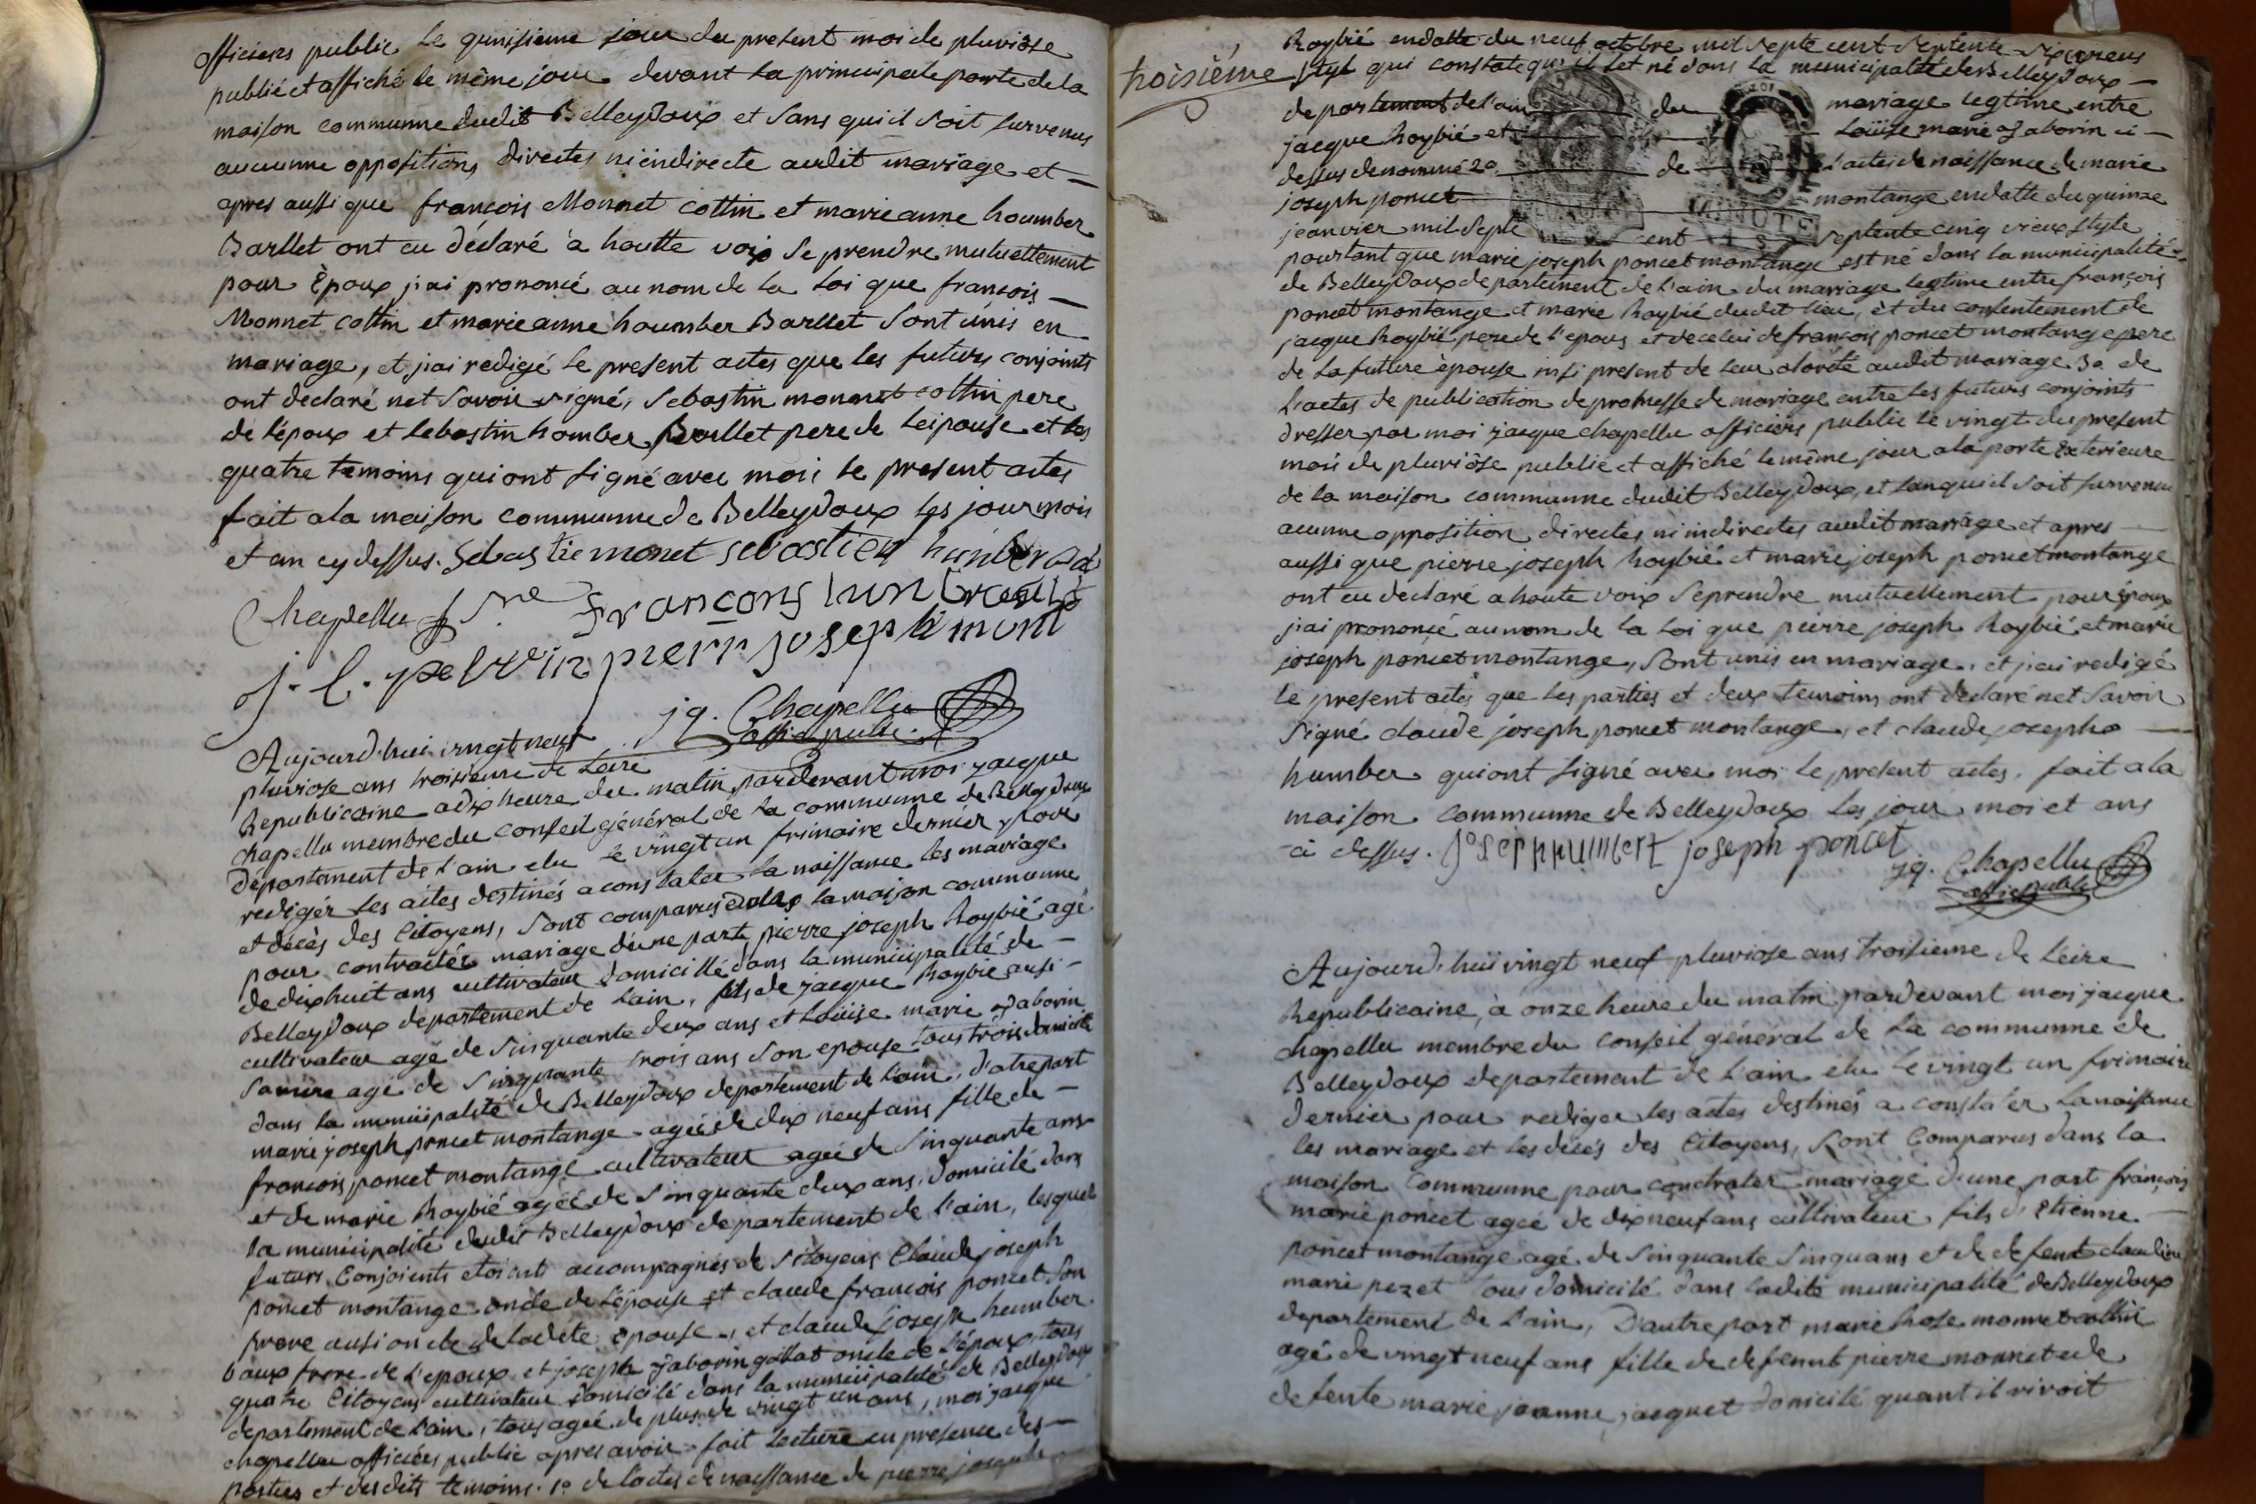 officiers public le quinsieme jour du present moi de pluviôse
publié et affiché le même jour devant la principale porte de la
maison communne dudit Belleydoux et sans qui il soit survenus
aucunne oppositions directes ni indirecte audit mariage et —
apres aussi que francois Monnet cottin et marie anne houmber
Barllet ont eu déclaré à hautte voix se prendre mutuellement
pour Époux j'ai prononcé au nom de la loi que francois —
Monnet cottin et marie anne houmber Barllet sont unis en
mariage, et j'ai redigé le present actes que les futurs conjoints
ont declaré net savoir signé, Sebastin monnet cottin pere
de l'époux et sebastin homber Barllet pere de leipouse et les
quatre temoins qui ont signé avec moi le present actes
fait a la maison communne de Belleydoux les jour mois
et an cy dessus. Sebastie monet sebastien humber
Chapellu francons
j. l. pierr joseph mont
jq. Chapellu
offic public
Aujourd'hui vingt neuf
pluviose ans troisieme de leire
Republicaine a dix heure du matin pardevant moi jacque
chapellu membre du conseil général de la communne de Belleydoux
departement de l'ain elu le vingt un frimaire dernier pour
redigér les actes destinés a constater la naissance les mariage
et décès des Citoyens, sont comparus dans la maison communne
pour contracter mariage d'une part pierre joseph Roybié agé
de dix huit ans cultivateur domicillé dans la municipalité de —
Belleydoux departement de l'ain, fils de jacque Roybié ausi —
cultivateur agé de sinquante deux ans et Loüise marie
sa mere agé de sinquante trois ans son epouse tous trois domicilé
dans la municipalité de Belleydoux departement de l'ain, d'atre part
marie joseph poncet montange agéé de dix neuf ans fille de —
francois poncet montange cultivateur ageé de sinquante ans
et de marie Roybié ageé de sinquante deux ans, domicilé dans
la municipalité dudit Belleydoux departement de l'ain, lesquels
futurs Conjoients etoient accompagnés de sitoyens Claude joseph
poncet montange oncle de l'épouse et claude francois poncet son
frere ausi oncle de ladite epouse, et claude joseph humber
baux frere de l'epoux et joseph gollat oncle de l'époux, tous
quatre Citoyens cultivateur domicilé dans la municipalité de Belleydoux
departement de l'ain, tous ageé de plus de vingt un ans, moi jacque
chapellu officiers public apres avoir fait lecture en presence des —
parties et desdits temoins. 1o de l'actes de naissance de pierre joseph
Roybié en datte du neuf octobre mil septe cent septente six vieux
troisiéme
styl qui constate qu'il est né dans la municipalité de Belleydoux —
departement de l'ain du mariage legtime entre
jacque Roybié et Loüise marie ci —
dessus denommé 2o de l'actes de naissance de marie
joseph poncet montange en datte du quinze
jeanvier mil septe cent septente cinq vieux style
pourtant que marie joseph poncet montange est né dans la municipalité
de Belleydoux departement de l'ain du mariage legtime entre françois
poncet montange et marie Roybié dudit lieu, et du consentement de
jacque Roybié pere de l'epous et de celui de françois poncet montange pere
de la future épouse insi present de leur alorité audit mariage 3o de
l'actes de publication de promesse de mariage entre les futurs conjoints
dresser par moi jacque chapellu officiers public le vingt du present
moi de pluviôse publié et affiché le même jour a la porte exterieure
de la maison communne dudit Belleydoux, et sanqui il soit survenu
aucunne opposition directes ni indirectes audit mariage et apres —
aussi que pierre joseph Roybié et marie joseph poncet montange
ont eu declaré a haute voix seprendre mutuellement pour époux
j'ai prononcé au nom de la loi que pierre joseph Roybié et marie
joseph poncet montange, sont unis en mariage, et j'ai redigé
le present actes que les parties et deux temoins ont declaré net savoir
signé claude joseph poncet montange, et claude joseph —
humber qui ont signé avec moi le present actes. fait a la
maison communne de Belleydoux les jour moi et ans
ci dessus. Joseph humbert joseph poncet
jq. Chapellu
offic public
Aujourd'hui vingt neuf pluviose ans troisieme de leire
Republicaine, à onze heure du matin pardevant moi jacque
chapellu membre du conseil général de la communne de
Belleydoux departement de l'ain elu le vingt un frimaire
dernier pour rediger les actes destinés a constatér la naissance
les mariage et les décés des Citoyens, sont Comparus dans la
maison Communne pour contrater mariage d'une part françois
marie poncet ageé de dix neuf ans cultivateur fils d'etienne —
poncet montange agé de sinquante sinquans et de defente claudine
marie pezet tous domicilé dans ladite municipalité de Belleydoux
departement de l'ain, D'autre part marie Rose monnet cottin
agé de vingt neuf ans fille de defeunt pierre monnet et de
defente marie jeanne jacquet domicilé quant il vivoit